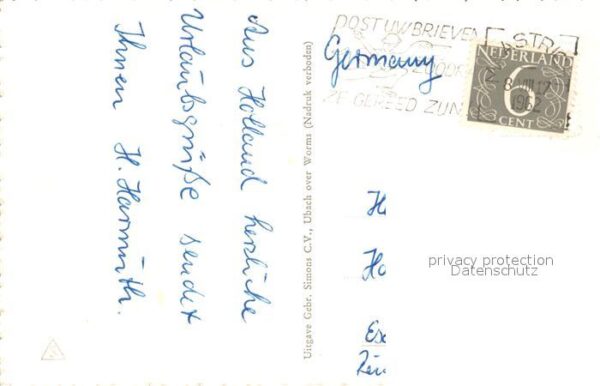 Aus Holland herzliche
Urlaubsgrüße sendet
Ihnen H. Harmuth.
Uitgave Gebr. Simons C.V., Ubach over Worms (Nadruk verboden)
POST UW BRIEVEN
ZE GEREED ZIJN
STR
8 VIII 17
1962
NEDERLAND
6
CENT
Germany
H
Ha
Es
privacy protection
Datenschutz